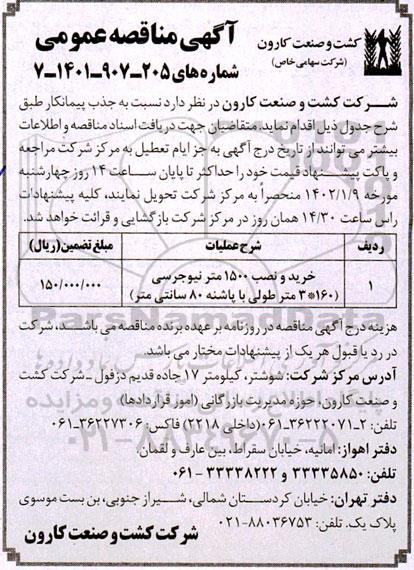 آگهی مناقصه عمومی
شماره‌های ۲۰۵-۹۰۷-۱۴۰۱-۷
کشت و صنعت کارون
(شرکت سهامی خاص)
شرکت کشت و صنعت کارون در نظر دارد نسبت به جذب پیمانکار طبق
شرح جدول ذیل اقدام نماید، متقاضیان جهت دریافت اسناد مناقصه و اطلاعات
بیشتر می توانند از تاریخ درج آگهی به جز ایام تعطیل به مرکز شرکت مراجعه
و پاکت پیشنهاد قیمت خود را حداکثر تا پایان ساعت ۱۴ روز چهارشنبه
مورخه ۱۴۰۲/۱/۹ منحصراً به مرکز شرکت تحویل نمایند، کلیه پیشنهادات
راس ساعت ۱۴/۳۰ همان روز در مرکز شرکت بازگشایی و قرائت خواهد شد.
ردیف شرح عملیات مبلغ تضمین(ریال)
۱ خرید و نصب ۱۵۰۰ متر نیوجرسی ۱۵۰/۰۰۰/۰۰۰
(۱۶۰*۳ متر طولی با پاشنه ۸۰ سانتی متر)
هزینه درج آگهی مناقصه در روزنامه بر عهده برنده مناقصه می باشد، شرکت
در رد یا قبول هر یک از پیشنهادات مختار می باشد.
آدرس مرکز شرکت: شوشتر، کیلومتر ۱۷ جاده قدیم دزفول -شرکت کشت
و صنعت کارون، حوزه مدیریت بازرگانی (امور قراردادها)
تلفن: ۲-۳۶۲۲۲۰۷۱-۰۶۱(داخلی ۲۲۱۸) فاکس: ۳۶۲۲۷۳۰۶-۰۶۱
دفتر اهواز: امانیه، خیابان سقراط، بین عارف و لقمان.
تلفن: ۳۳۳۳۵۸۵۰ و ۳۳۳۳۸۲۲۲ -۰۶۱
دفتر تهران: خیابان کردستان شمالی، شیراز جنوبی، بن بست موسوی
پلاک یک. تلفن: ۸۸۰۳۶۷۵۳-۰۲۱
شرکت کشت و صنعت کارون
ParsNamadData
۰۲۱-۸۸۳۴۹۶۷۰-۵